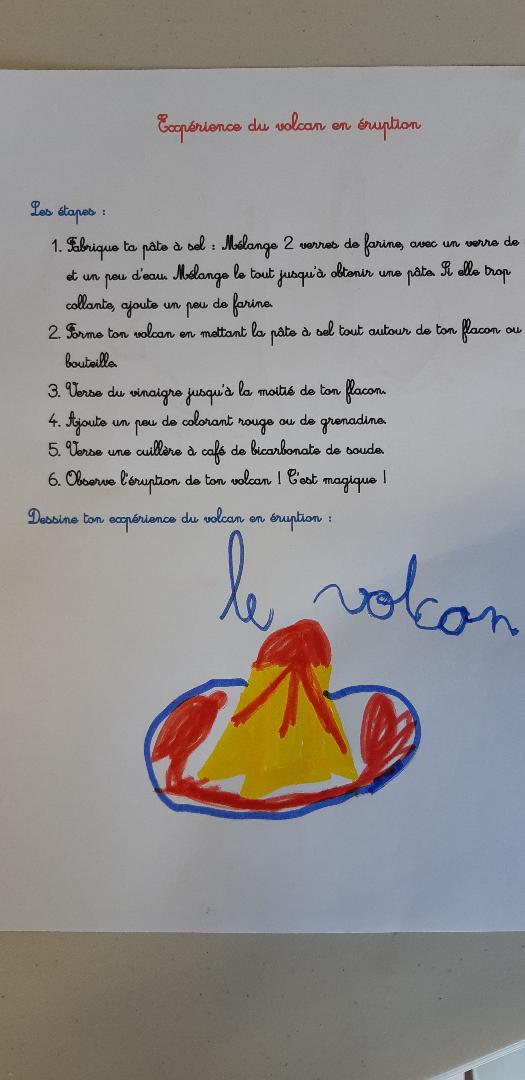 Expérience du volcan en éruption
Les étapes :
1. Fabrique ta pâte à sel : Mélange 2 verres de farine, avec un verre de
et un peu d'eau. Mélange le tout jusqu'à obtenir une pâte. Si elle trop
collante, ajoute un peu de farine.
2. Forme ton volcan en mettant la pâte à sel tout autour de ton flacon ou
bouteille.
3. Verse du vinaigre jusqu'à la moitié de ton flacon.
4. Ajoute un peu de colorant rouge ou de grenadine.
5. Verse une cuillère à café de bicarbonate de soude.
6. Observe l'éruption de ton volcan ! C'est magique !
Dessine ton expérience du volcan en éruption :
le volcan